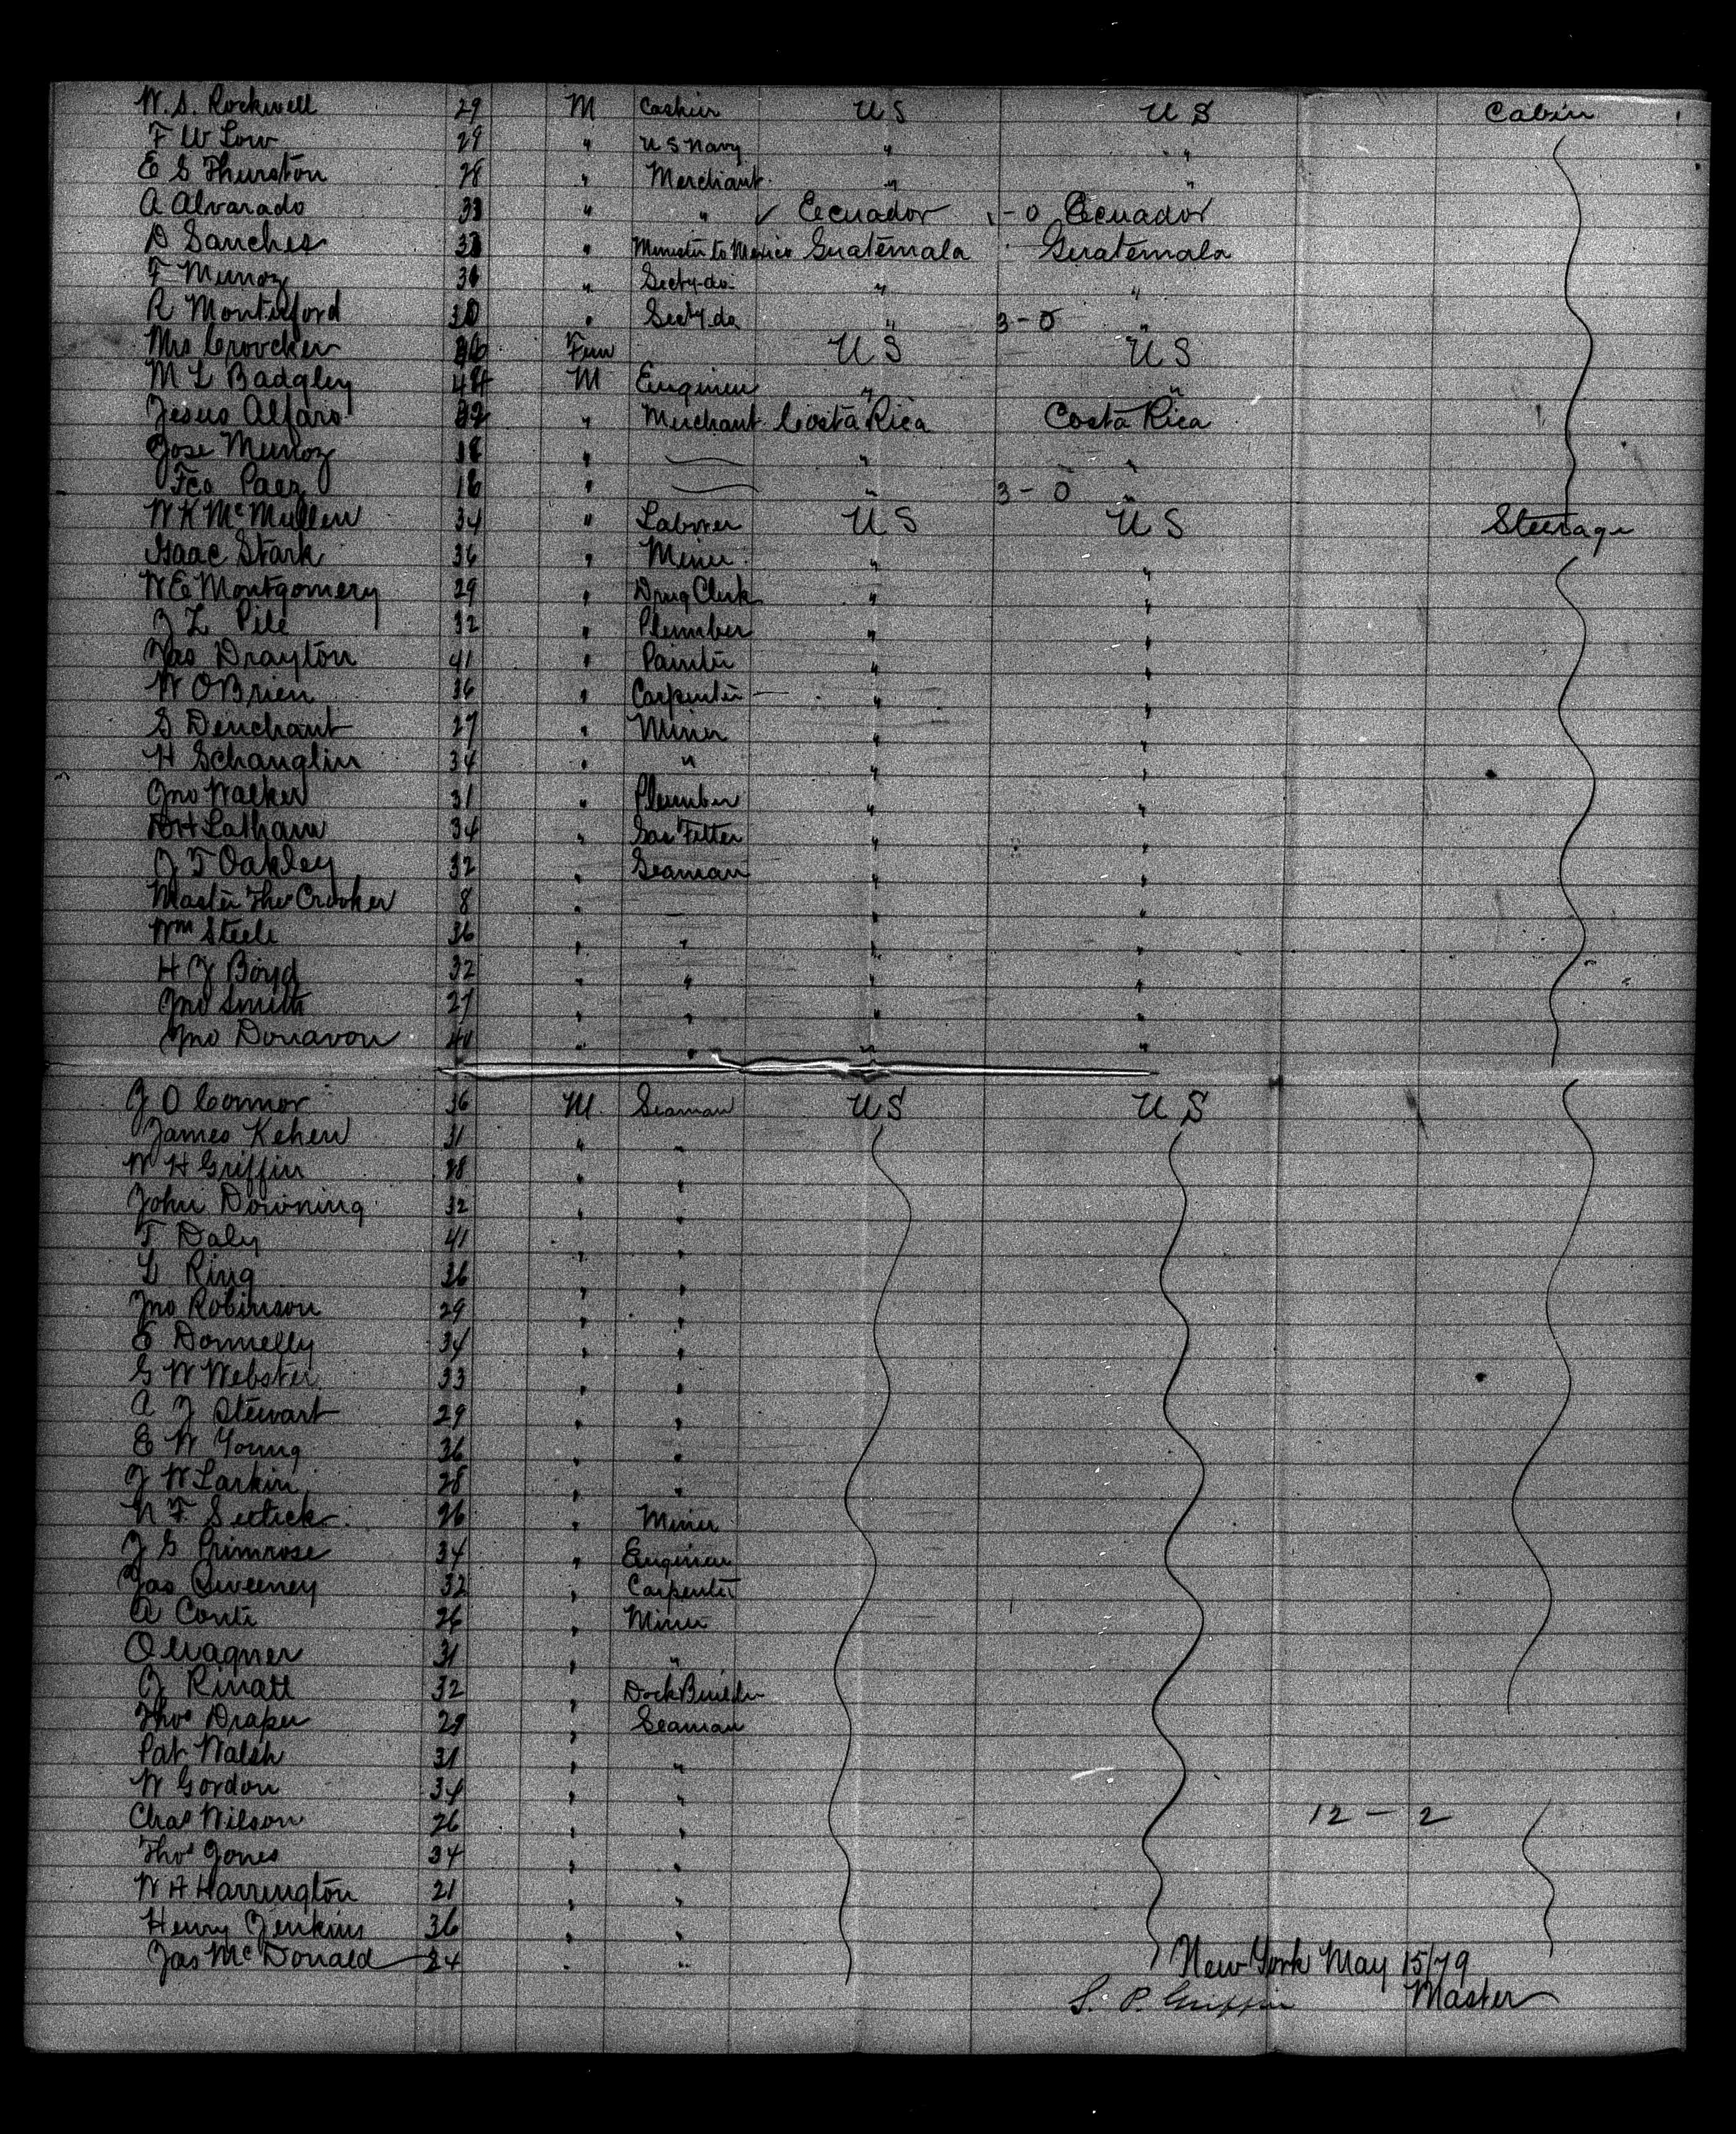 W. S. Rockwell 29 M Cashier U S U S Cabin
F W Low 29 " U S Navy " "
E S Thurston 28 " Merchant " "
A Alvarado 33 " " ✓ Ecuador 1-0 Ecuador
D Sanches " Minister to Mexico Guatemala Guatemala
F Munoz 36 " Secty do " "
R Montuford 30 " Secty do " 3-0 "
Mrs Croocker Fem U S U S
M L Badgley 44 M Engineer " "
Jesus Alfaro 32 " Merchant Costa Rica Costa Rica
Jose Munoz 18 " " "
Fco Paez 16 " " 3-0 "
W K McMullen 34 " Laborer U S U S Steerage
Isaac Stark 36 " Miner " "
W E Montgomery 29 " Drug Clerk " "
J L Pile 32 " Plumber " "
Jas Drayton 41 " Painter " "
W OBrien 36 " Carpenter " "
S Denchant 27 " Miner " "
H Schanglin 34 " " " "
Jno Walker 31 " Plumber " "
DH Latham 34 " Gas Fitter " "
J T Oakley 32 " Seaman " "
Master Thos Crooker 8 " " "
Wm Steele 36 " " " "
H J Boyd 32 " " " "
Jno Smith 27 " " " "
Jno Donavon 40 " " " "
J O Connor 36 M Seaman U S U S
James Kehen 31 " "
W H Griffin 28 " "
John Downing 32 " "
T Daly 41 " "
L Ring 36 " "
Jno Robinson 29 " "
E Donnelly 34 " "
G W Webster 33 " "
A J Stewart 29 " "
E W Young 36 " "
J W Larkin 28 " "
N F Seetick 26 " Miner
J G Primrose 34 " Engineer
Jas Sweeney 32 " Carpenter
A Conti 26 " Miner
O Wagner 31 " "
J Rinatt 32 " Dock Builder
Thos Draper 29 " Seaman
Pat Walsh 31 " "
W Gordon 34 " "
Chas Wilson 26 " " 12 - 2
Thos Jones 34 " "
W H Harrington 21 " "
Henry Jenkins 36 " "
Jas McDonald 24 " " New York May 15/79
S. P. Griffin Master